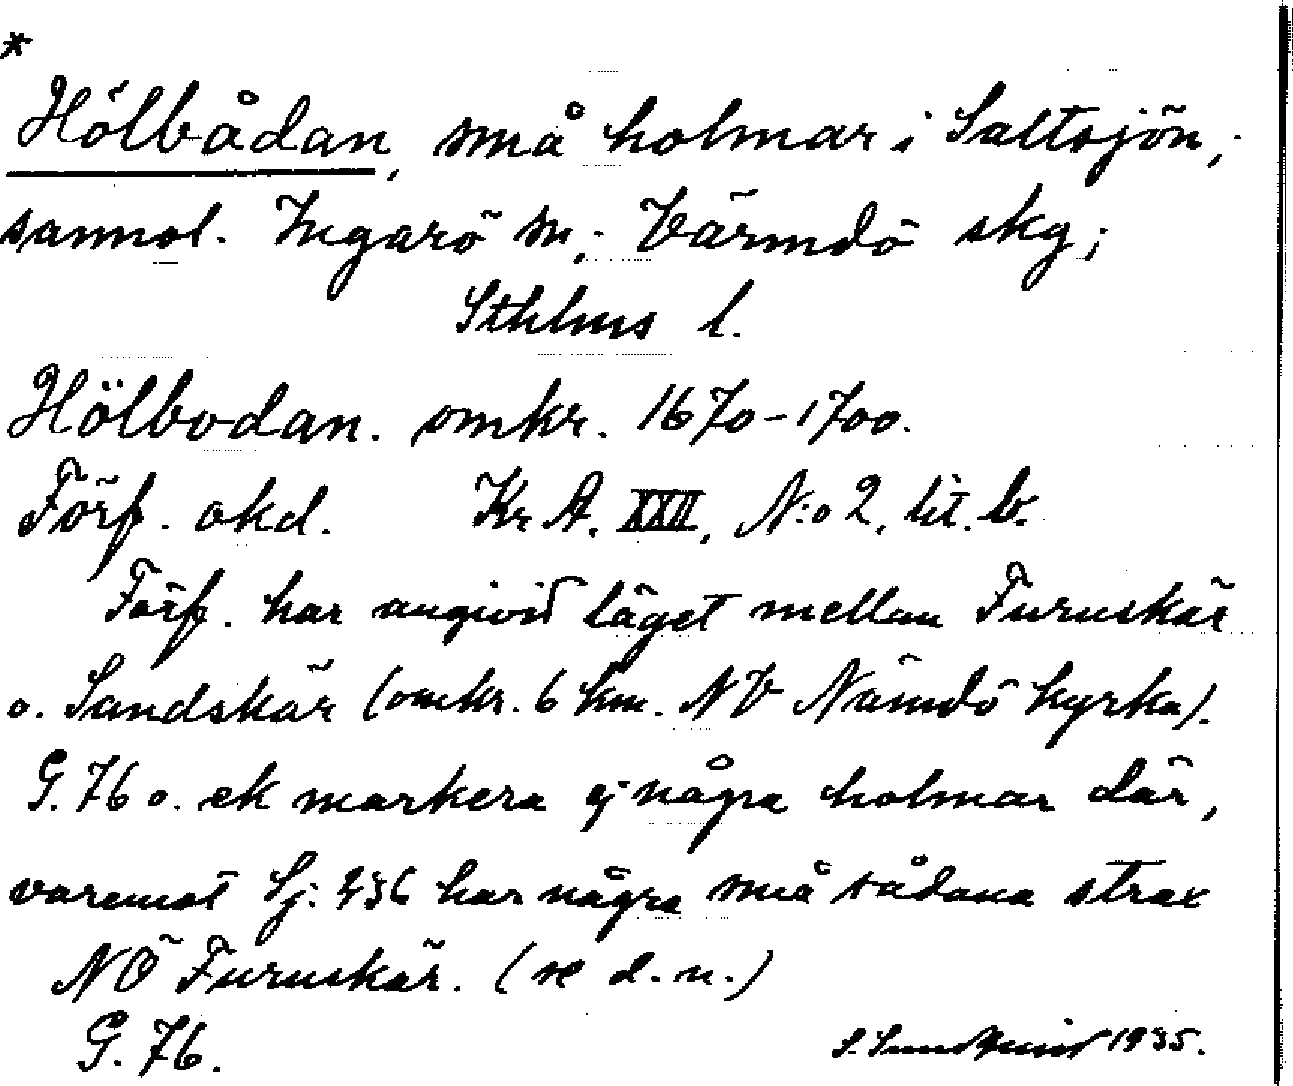 *
Hölbådan, små holmar i Saltsjön,
sannol. Ingarö sn; Värmdö skg;
Sthlms l.
Hölbodan. omkr. 1670-1700.
Förf. okd. Kr. A. XXII, N:o 2, lit. b.
Förf. har angivit läget mellan Furuskär
o. Sandskär (omkr. 6 km. NV Nämdö kyrka).
G. 76 o. ek markera ej några holmar där,
varemot Sj: 236 har några små sådana strax
NÖ Furuskär. (se d. n.)
G. 76.
S. Sundquist 1935.